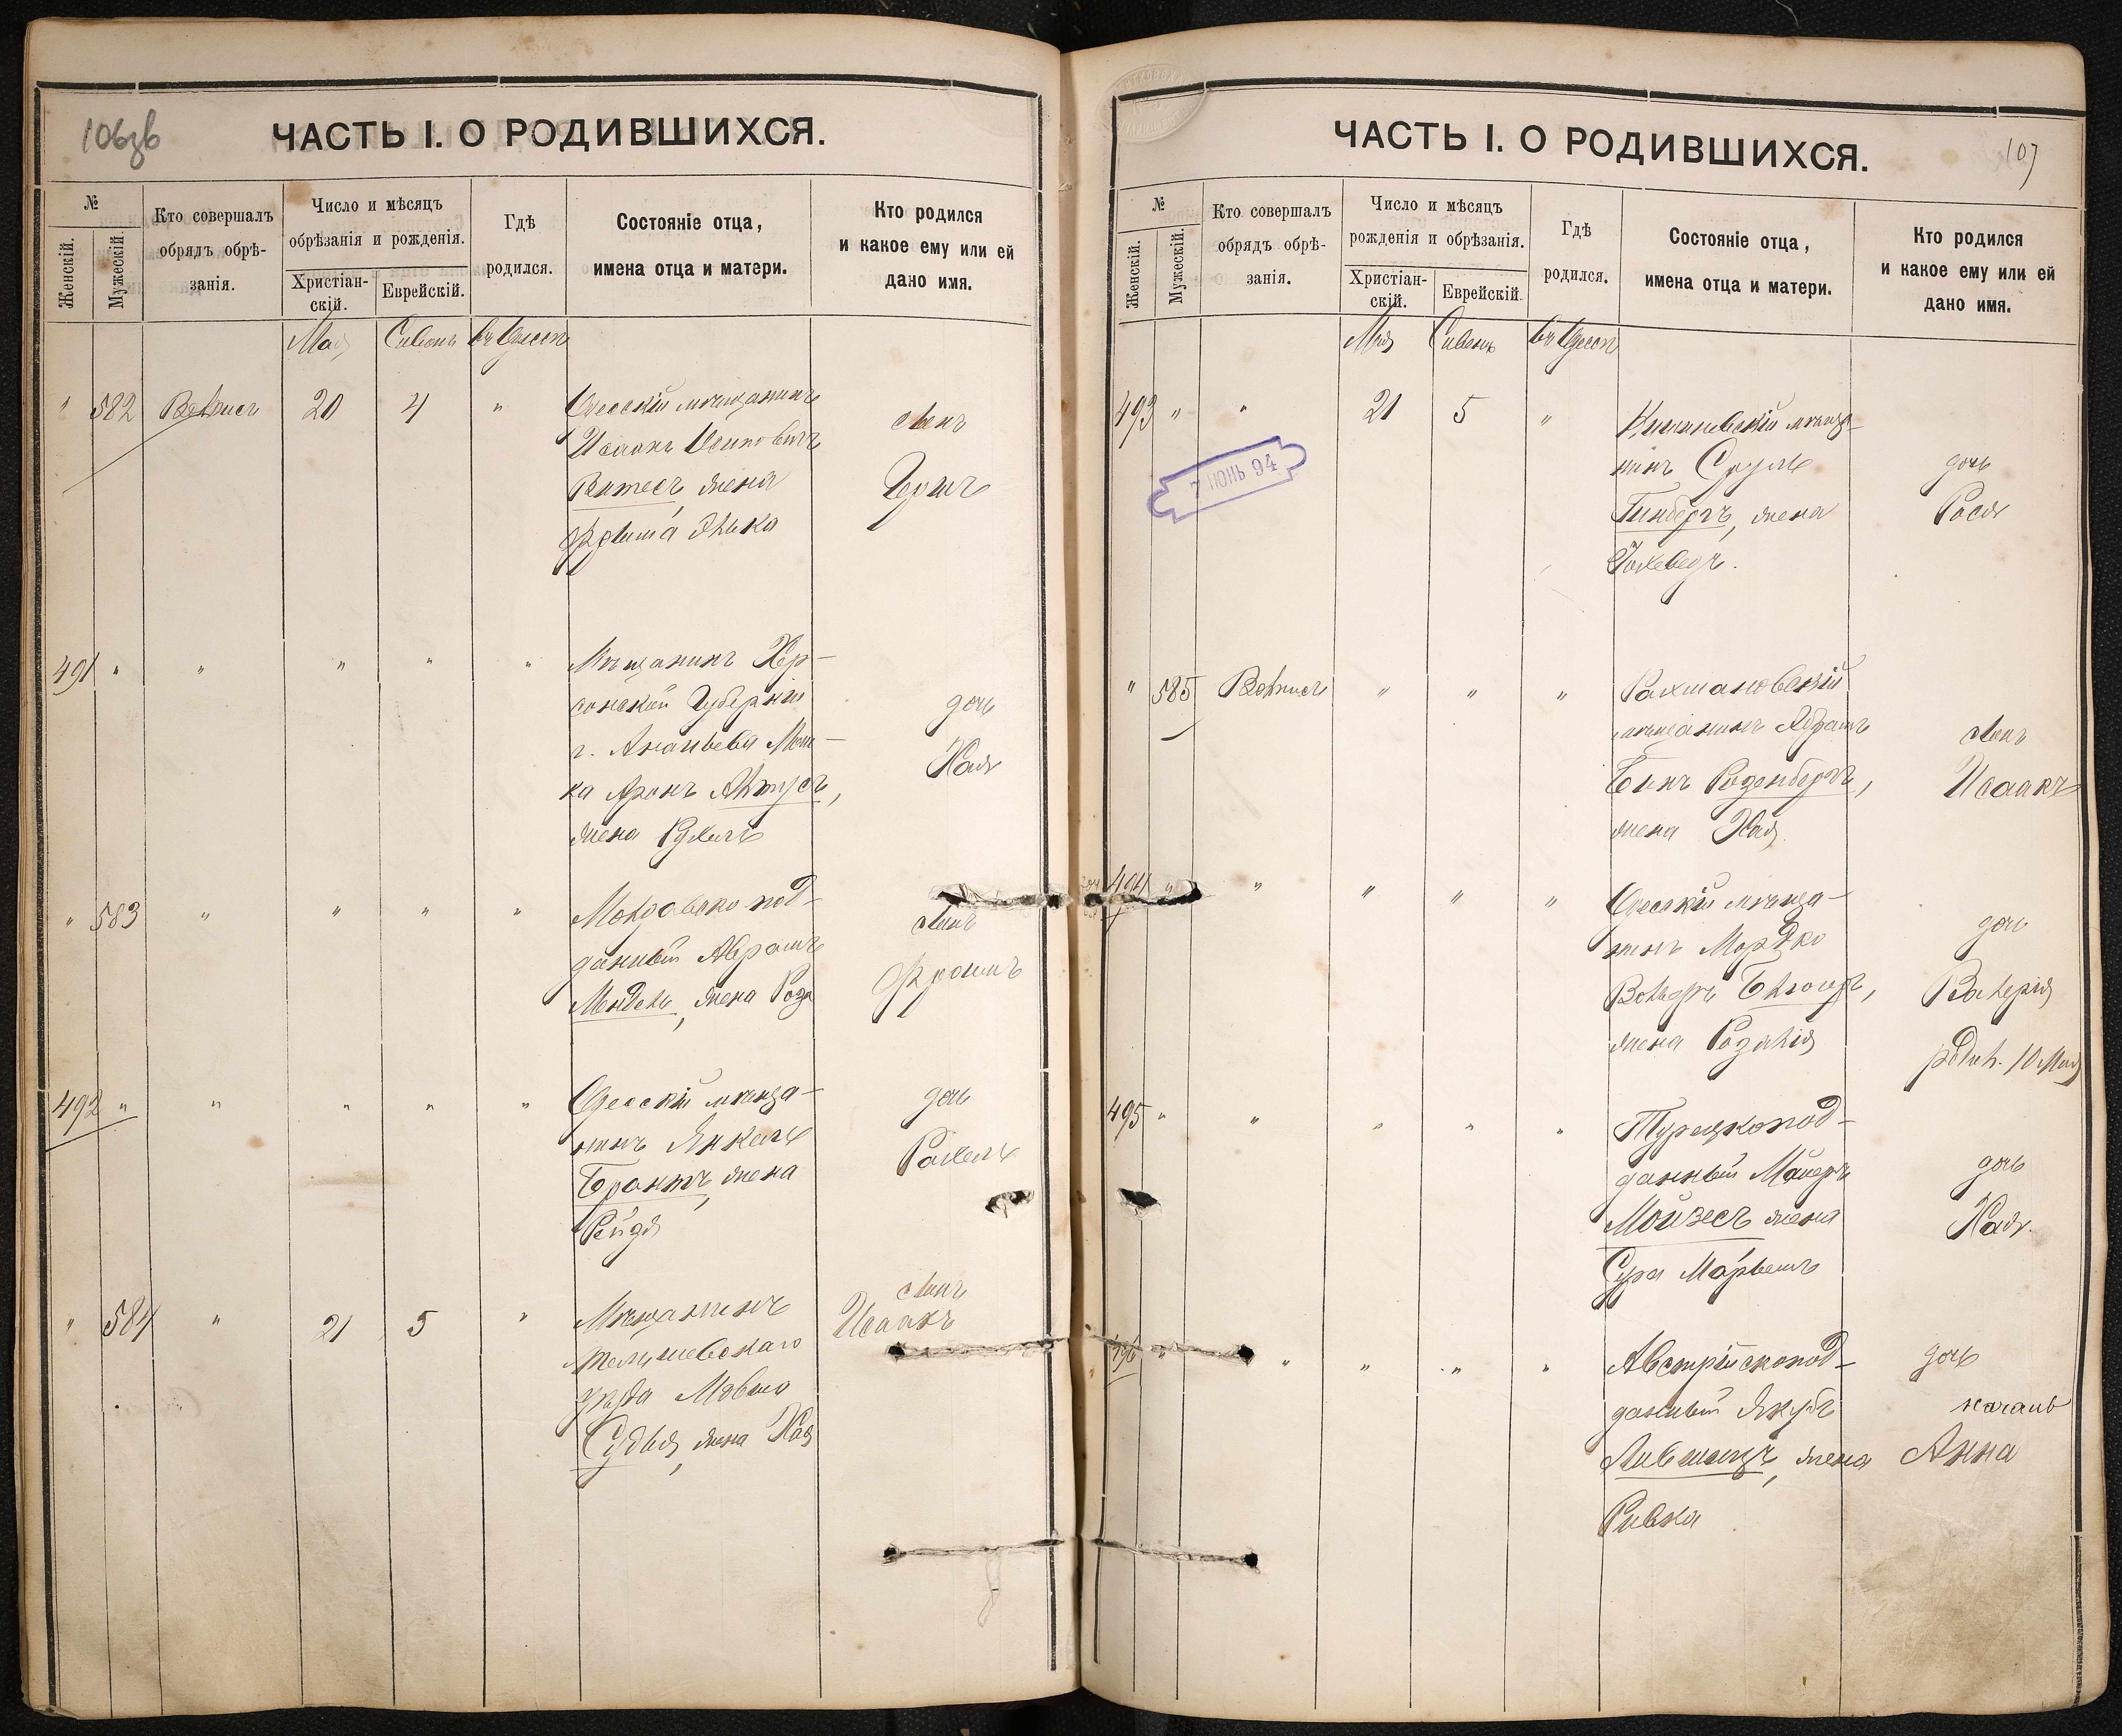 106об
ЧАСТЬ I. О РОДИВШИХСЯ.
№
Женскій.
Мужескій.
Кто совершалъ
обрядъ обрѣ-
занія.
Число и мѣсяцъ
обрѣзанія и рожденія.
Христіан-
скій.
Еврейскій.
Гдѣ
родился.
Состояніе отца,
имена отца и матери.
Кто родился
и какое ему или ей
дано имя.
Мая Сивонъ въ Одессѣ
" 582 20 4 " Одесскій мѣщанинъ
Исаакъ
Витесъ, жена
сынъ
Герша
491 " " " " " Мѣщанинъ Хер-
сонской Губерніи
г. Ананьева Мош-
ка Аронъ
жена Рухель
дочь
Хая
" 583 " " " " Молдавско под-
данный Аврамъ
Мендель, жена Роза
сынъ
Фроимъ
492 " " " " " Одесскій мѣща-
нинъ Янкель
Брантъ, жена
Рейзя
дочь
Рахель
" 584 " 21 5 " Мѣщанинъ
Тельшевскаго
уѣзда Мовша
Судья, жена Хая
сынъ
Исаакъ
107
ЧАСТЬ I. О РОДИВШИХСЯ.
№
Женскій.
Мужескій.
Кто совершалъ
обрядъ обрѣ-
занія.
Число и мѣсяцъ
рожденія и обрѣзанія.
Христіан-
скій.
Еврейскій.
Гдѣ
родился.
Состояніе отца,
имена отца и матери.
Кто родился
и какое ему или ей
дано имя.
Мая Сивонъ въ Одессѣ
493 " " 21 5 " Кишиневскій мѣща-
нинъ Сруль
Гинбергъ, жена
Йохеведъ.
дочь
Рося
ИЮНЬ 94
" 585 " " " Рахмановскій
мѣщанинъ Абрамъ
Бинъ Розенбергъ,
жена Хая
сынъ
Исаакъ
494 " " " " " Одесскій мѣща-
нинъ Мордко
жена Розалія
дочь
Валерія
родил. 10 Мая
495 " " " " " Турецкопод-
данный Майеръ
Мойзесъ жена
Сура Марьемъ
дочь
Хая.
496 " " " " " Австрійскопод-
данный Якубъ
Лившицъ, жена
Ривка
дочь
Анна